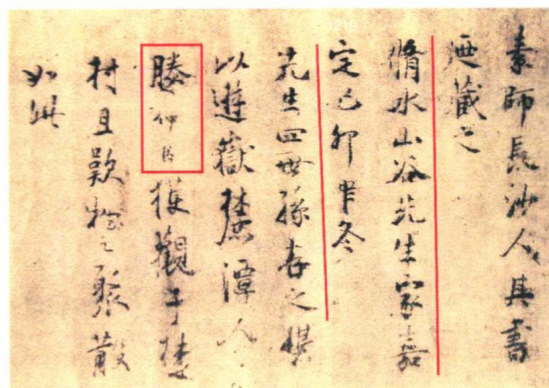 素師長沙人其書
迺藏之
脩水山谷先生家嘉
定己卯冬
先生四世孫之
以遊嶽麓潭人
滕仲因獲觀于楚
村且歎物之聚散
如此